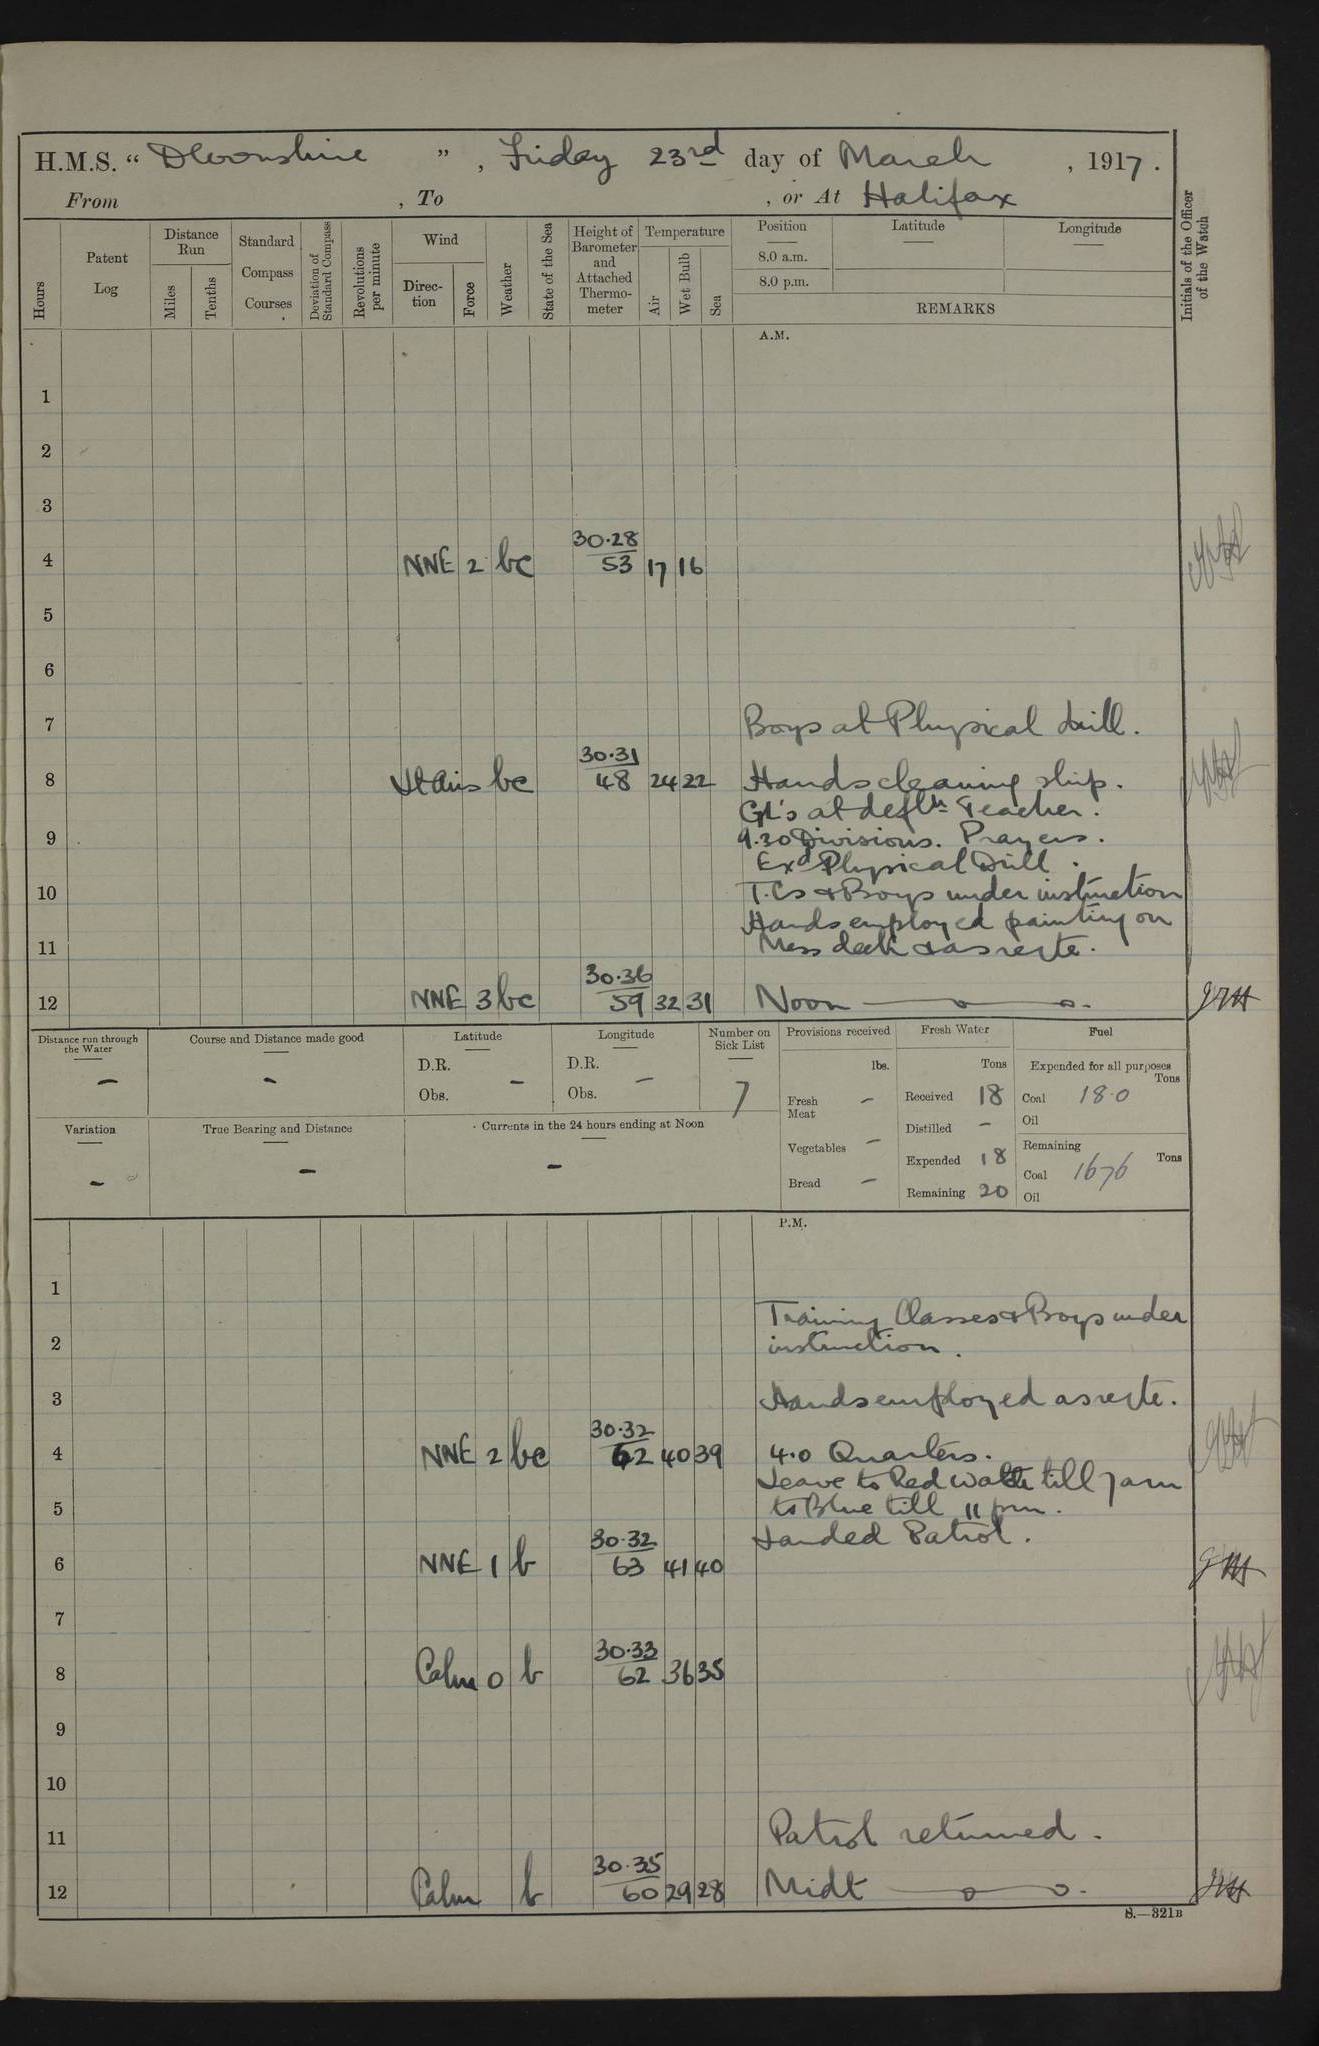 H.M.S. “ Devonshire ” , Friday 23rd day of March , 1917 .
From , To , or At Halifax
Hours
Patent Log
Distance Run
Miles
Tenths
Standard Compass Courses
Deviation of Standard Compass
Revolutions per minute
Wind
Direction
Force
Weather
State of the Sea
Height of Barometer and Attached Thermometer
Temperature
Air
Wet Bulb
Sea
Position
8.0 a.m.
8.0 p.m.
Latitude
Longitude
REMARKS
Initials of the Officer of the Watch
A.M.
1
2
3
30.28
4 NNE 2 bc 53 17 16
5
6
7 Boys at Physical drill.
30.31
8 Lt Airs bc 48 24 22 Hands cleaning ship.
GL's at Teacher.
9 9.30 Divisions. Prayers.
Exd Physical Drill.
10 T.Cs & Boys under instruction
Hands employed painting on
11 Mess deck & as reqte.
30.36
12 NNE 3 bc 59 32 31 Noon
Distance run through the Water
–
Course and Distance made good
–
Latitude
D.R.
Obs. –
Longitude
D.R. –
Obs.
Number on Sick List
7
Provisions received
lbs.
Fresh Meat –
Vegetables –
Bread –
Fresh Water
Tons
Received 18
Distilled –
Expended 18
Remaining 20
Fuel
Expended for all purposes
Tons
Coal 18.0
Oil
Remaining
Tons
Coal 1676
Oil
Variation
–
True Bearing and Distance
–
Currents in the 24 hours ending at Noon
–
P.M.
1
Training Classes & Boys under
2 instruction.
3 Hands employed as reqte.
30.32
4 NNE 2 bc 62 40 39 4.0 Quarters.
Leave to Red Watch till 7 am
5 to Blue till 11 pm.
30.32 Landed Patrol.
6 NNE 1 b 63 41 40
7
30.33
8 Calm 0 b 62 36 35
9
10
11 Patrol returned.
30.35
12 Calm b 60 29 28 Midt
S.—321B